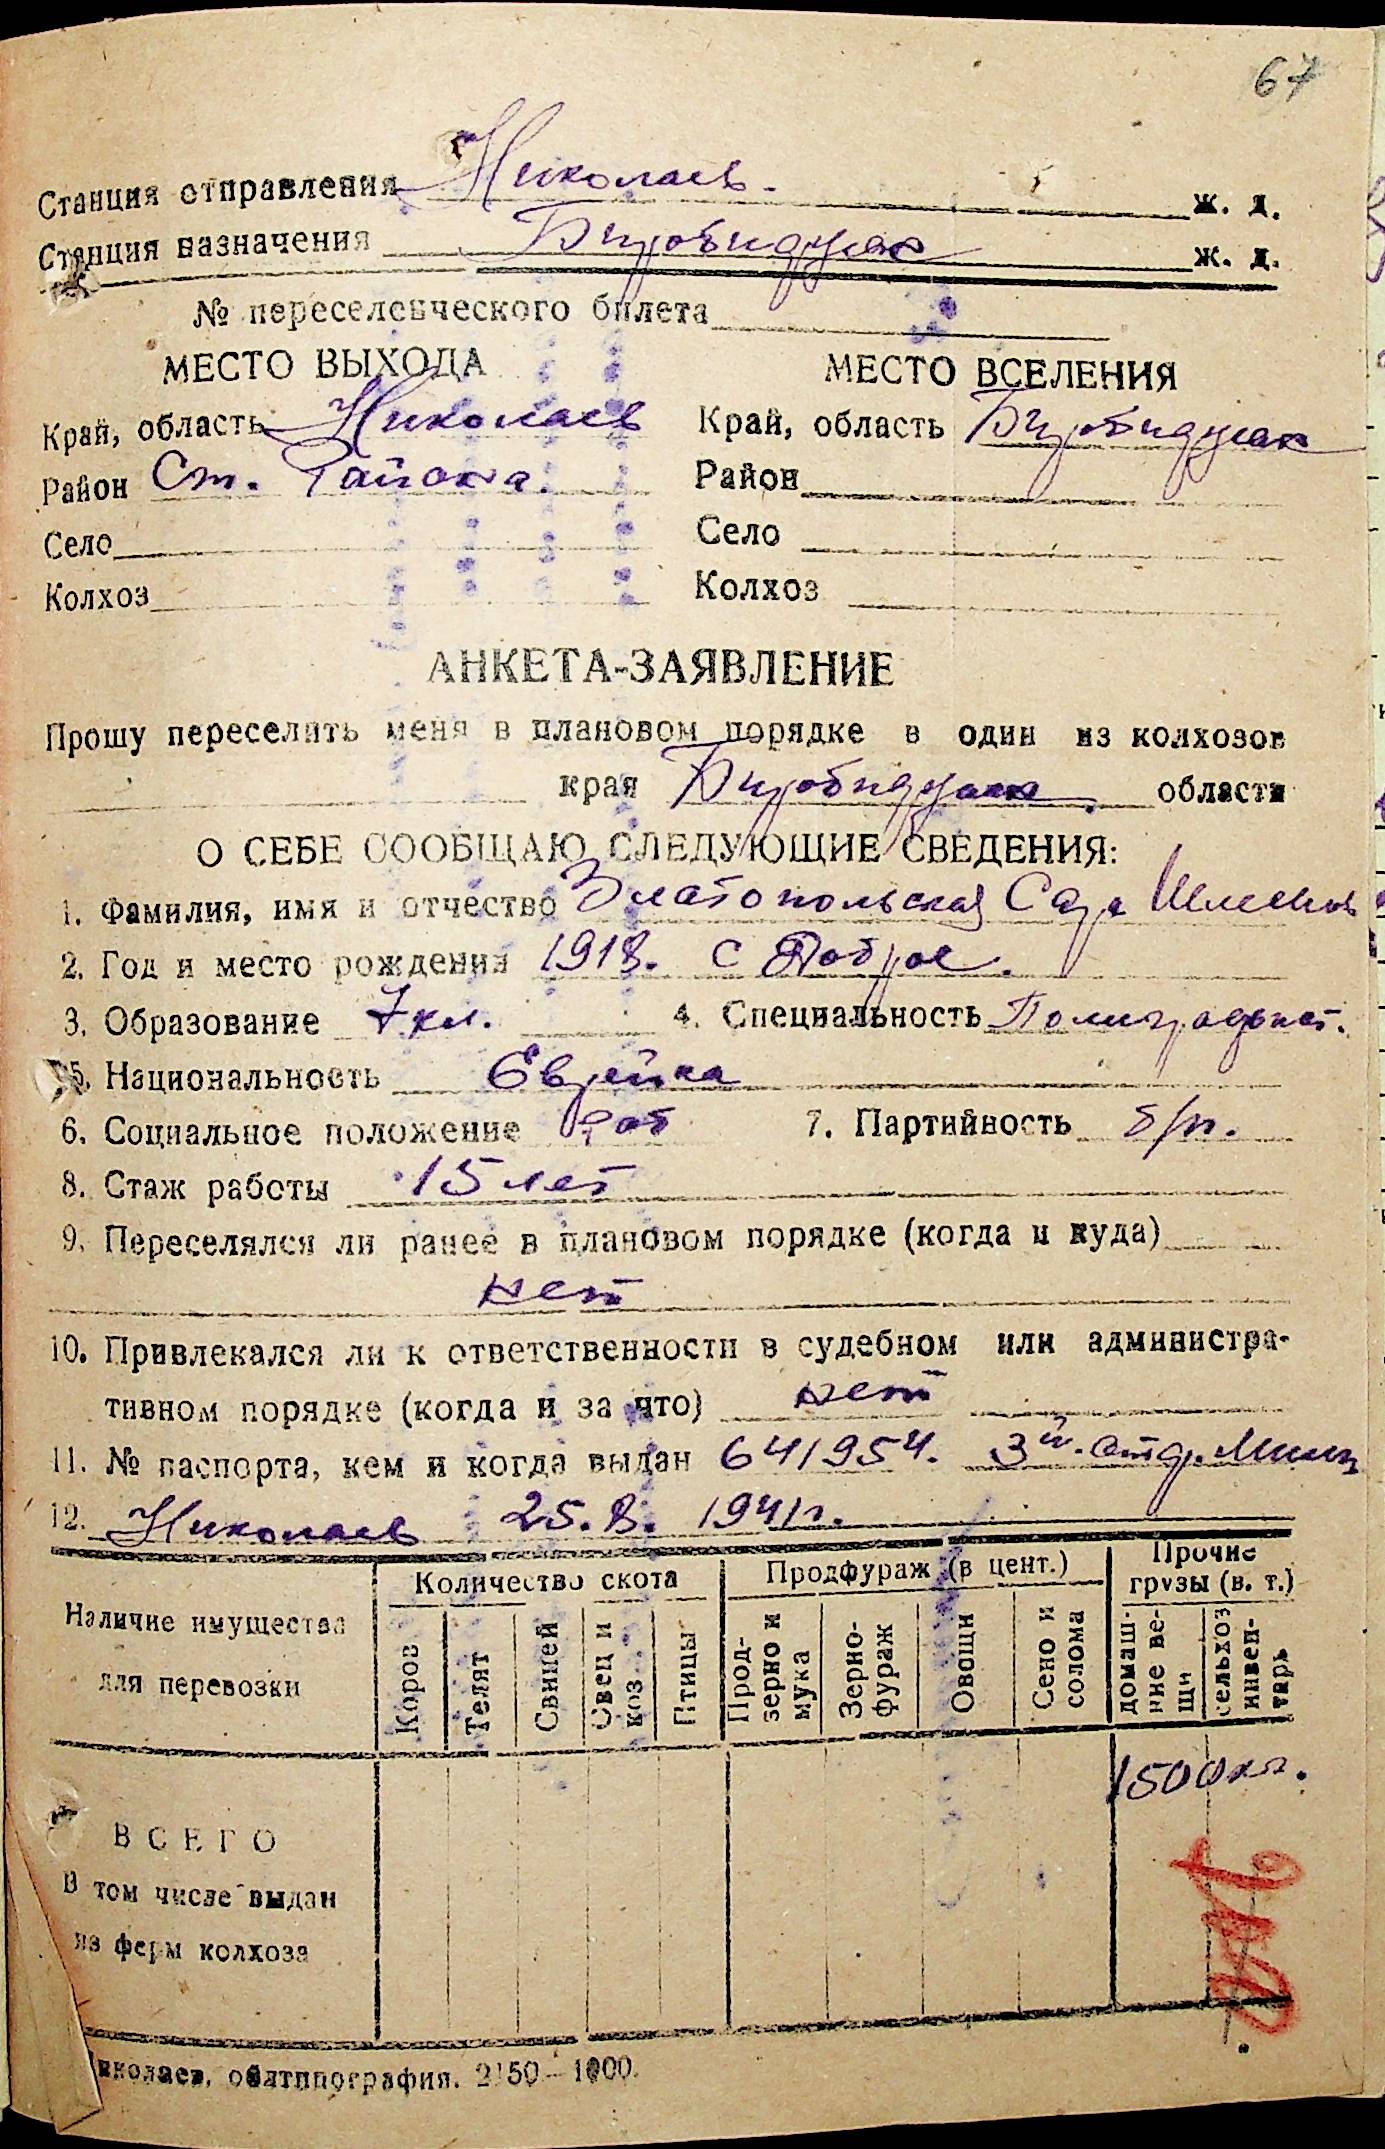 67
Станция отправления Николаев. ж. д.
Станция назначения Биробиджан ж. д.
№ переселенческого билета
МЕСТО ВЫХОДА
Край, область Николаев
Район Ст. Района.
Село
Колхоз
МЕСТО ВСЕЛЕНИЯ
Край, область Биробиджан
Район
Село
Колхоз
АНКЕТА-ЗАЯВЛЕНИЕ
Прошу переселить меня в плановом порядке в один из колхозов
края Биробиджан. области
О СЕБЕ СООБЩАЮ СЛЕДУЮЩИЕ СВЕДЕНИЯ:
1. Фамилия, имя и отчество Златопольская Сара
2. Год и место рождения 1918. с Доброе.
3. Образование 7 кл. 4. Специальность
5. Национальность Еврейка
6. Социальное положение раб 7. Партийность б/п.
8. Стаж работы 15 лет
9. Переселялся ли ранее в плановом порядке (когда и куда)
нет
10. Привлекался ли к ответственности в судебном или администра-
тивном порядке (когда и за что) нет
11. № паспорта, кем и когда выдан 641954. 3й. отд. Милиц
12. Николаев 25. 8. 1941г.
Наличие имущества
для перевозки
Количество скота
Коров
Телят
Свиней
Овец и
коз
Птицы
Продфураж (в цент.)
Прод-
зерно и
мука
Зерно-
фураж
Овощи
Сено и
солома
Прочие
грузы (в. т.)
домаш-
ние ве-
щи
сельхоз
инвен-
тарь
1500кг.
ВСЕГО
В том числе выдан
из ферм колхоза
Николаев, облтипография. 2150—1000.